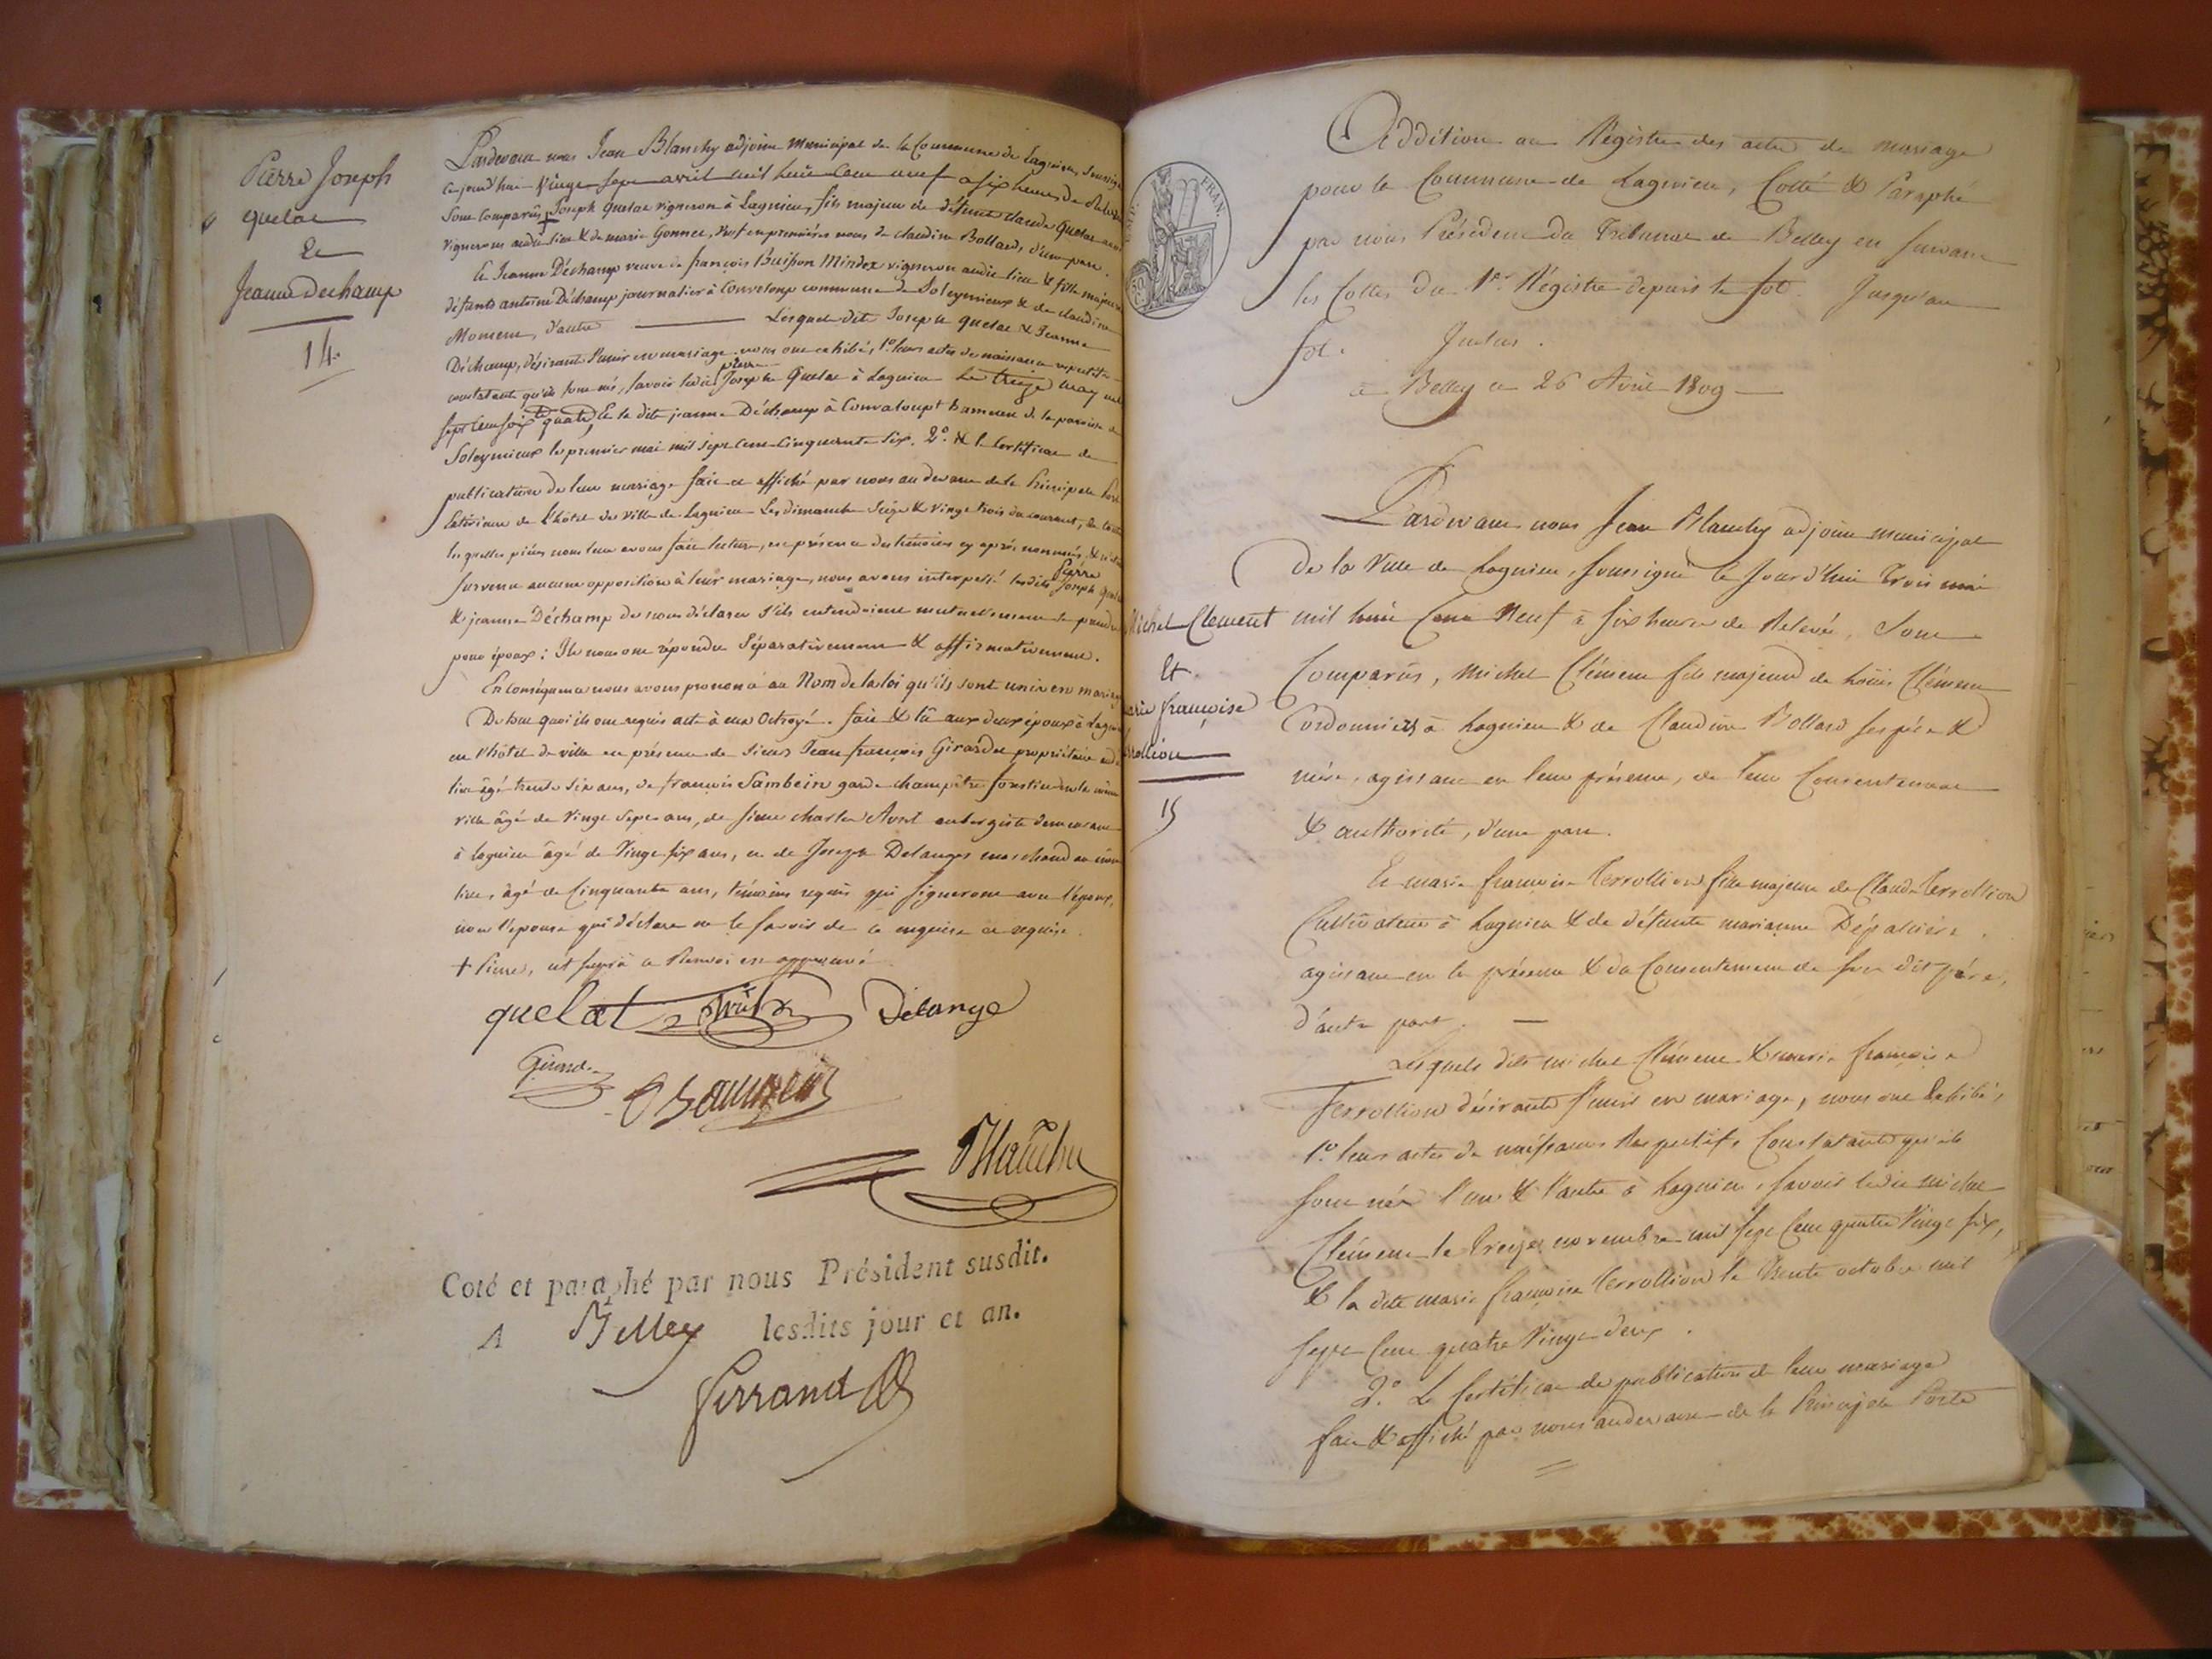 Pierre Joseph
quelat
Et
Jeanne Dechamp
14
Pardevant nous Jean Blanchy adjoint municipal de la Commune de Lagnieu, soussigné
ce jourd'hui vingt sept avril mil huit Cent neuf a six heures de Relevée
Sont Comparûs + Joseph Quelat vigneron à Lagnieu, fils majeur de défunt claude Quelat
vigneron audit lieu & de marie Gonnet, veuf en premières noces de claudine Bollard, d'une part.
Et Jeanne Déchamp veuve de françois Buisson Mindex vigneron audit lieu & fille majeure
défunts antoine Déchamp journalier à Conveloup commune de Soleymieux & de claudine
Moment, d'autre Lesquels dits Joseph Quelat & Jeanne
Déchamp, désirant s'unir en mariage nous ont exhibé, 1º. leurs actes de naissance respectifs
constatants qu'ils sont nés, savoir ledit pierre Joseph Quelat à Lagnieu le treize may mil
sept Cent soix te quatre, Et la dite jeanne Déchamp à Convaloupt hameau de la paroisse de
Soleymieux le premier mai mil sept cent cinquante six. 2º. & le Certificat de
publication de leur mariage fait et affiché par nous au devant de la Principale Porte
Extérieure de l'hôtel de ville de Lagnieu Les dimanche Seize & vingt trois du courant, de toutes
lesquelles pièces nous leur avons fait lecture, en présence des témoins cy après nommés, & n'étant
survenu aucune opposition à leur mariage, nous avons interpellé lesdits pierre Joseph Quelat
& jeanne Déchamp de nous déclarer s'ils entendoient mutuellement se prendre
pour époux : Ils nous ont répondu Séparativement & affirmativement.
En Conséquence nous avons prononcé au Nom de la loi qu'ils sont unis en mariage
De tout quoi ils ont requis acte à eux Octroyé. fait & lû aux deux époux à Lagnieu
en l'hôtel de ville en présence de Sieurs Jean françois Girardet propriétaire audit
lieu âgé trente six ans, de françois Sambein garde champêtre forestier de la même
ville âgé de vingt Sept ans, de sieur charles Avril aubergiste demeurant
à lagnieu âgé de vingt six ans, et de Joseph Delanges marchand au même
lieu, âgé de Cinquante ans, témoins requis qui signeront avec l'époux,
non l'épouse qui déclare ne le savoir de ce enquise et requise.
+ Pierre, a Renvoi est approuvé
quelat Avril Delange
Girard
Sambein
Blanchy
Coté et paraphé par nous Président susdit.
A Belley lesdits jour et an.
Ferrand
EMP. FRAN.
Addition au Régistre des actes de mariage
pour la Commune de Lagnieu, Cotté & Paraphé
par nous Président du Tribunal de Belley en suivant
les Cottes du 1er. Régistre depuis le fol. Jusqu'au
fol. Inclus.
à Belley ce 26 Avril 1809
Michel Clement
Et
marie françoise
Terrollion
15
Pardevant nous Jean Blanchy adjoint municipal
de la ville de Lagnieu, soussigné Ce Jourd'hui Trois mai
mil huit Cent Neuf à six heures de Relevée, Sont
Comparûs, michel Clément fils majeur de Loüis Clément
Cordonnier à Lagnieu & de Claudine Bollard ses père &
mère, agissant en leur présence, de leur Consentement
& authorité, d'une part.
Et marie françoise Terrollion fille majeure de Claude Terrollion
Cultivateur à Lagnieu & de défunte marianne Dépalière,
agissant en la présence & du Consentement de son dit père,
d'autre part.
Lesquels dits michel Clément & marie françoise
Terrollion désirants s'unir en mariage, nous ont Exhibé,
1º. leurs actes de naissances Respectifs Constatants qu'ils
sont nés l'un & l'autre à Lagnieu, savoir ledit michel
Clément le treize novembre mil sept Cent quatre vingt six,
& la dite marie françoise Terrollion le trente octobre mil
sept Cent quatre vingt deux.
2º. Le Certificat de publication de leur mariage
fait & affiché par nous au devant de la Principale Porte